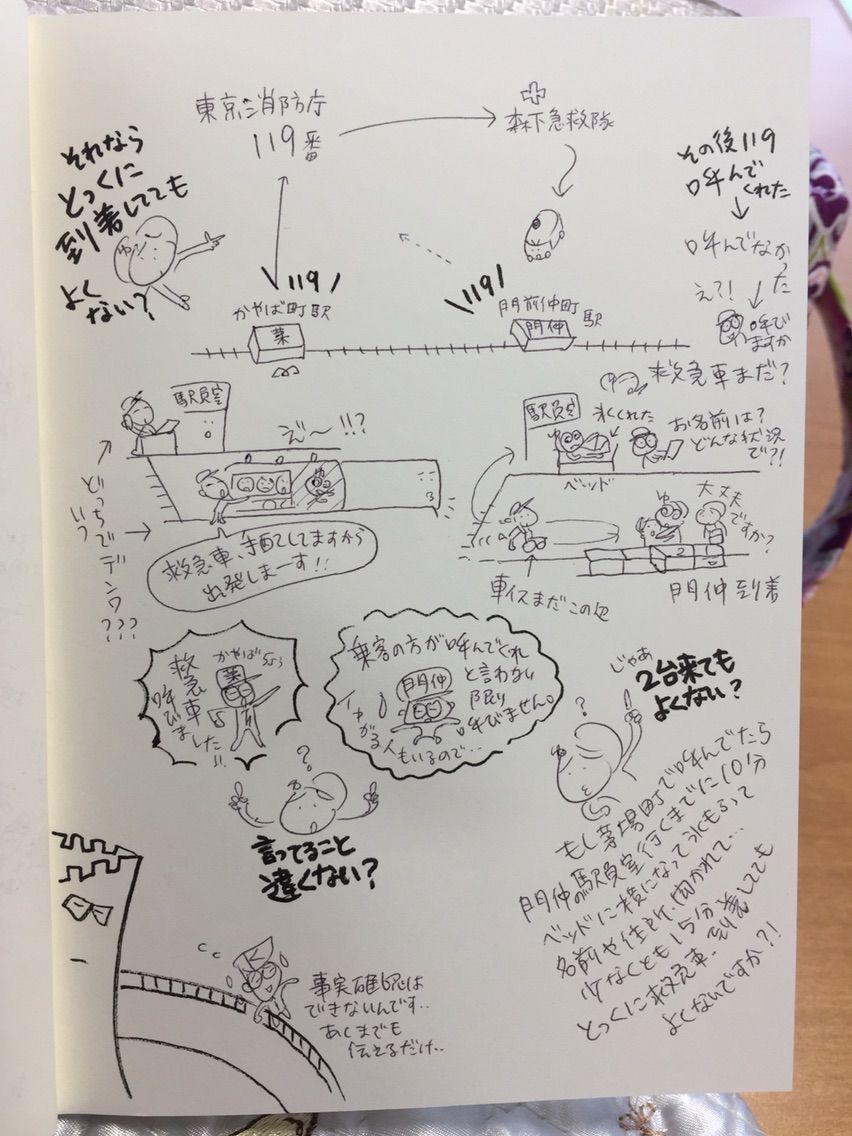 東京消防庁
119番
森下急救隊
それなら
とっくに
到着してても
よく
ない?
その後119
呼んで
くれた
呼んでなかった
え?!
呼び
ますか
119
かやば町駅
茅
119
門前仲町駅
門仲
救急車まだ?
駅員室
え〜!!?
どっちでデンワ???
救急車、手配してますから
出発しまーす!!
駅員室
氷くれた
お名前は?
どんな状況
で?!
ベッド
大丈夫
ですか?
2
車イスまだこの辺
門仲到着
かやばちょう
救急車
呼びました!!
乗客の方が呼んでくれ
と言わない
限り
呼びません。
門仲
イヤがる人
もいるので…
じゃあ
2台来ても
よくない?
?
?
言ってること
違くない?
もし茅場町で呼んでたら
門仲の駅員室行くまでに10分
ベッドに横になって氷もらって
名前や住所、聞かれて…
少なくとも15分
とっくに救急車、到着してても
よくないですか?!
事実確認は
できないんです‥
あくまでも
伝えるだけ‥